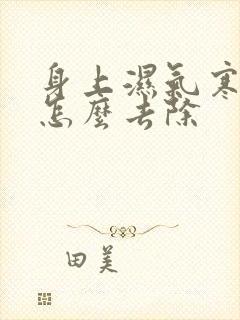 身上濕氣寒
怎麼去除
田美